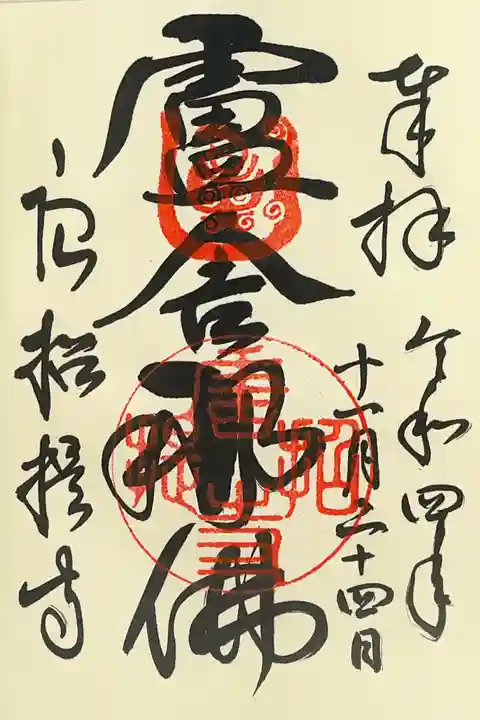 奉拝
令和四年
十一月二十四日
盧舎那佛
唐招提寺
唐招提寺